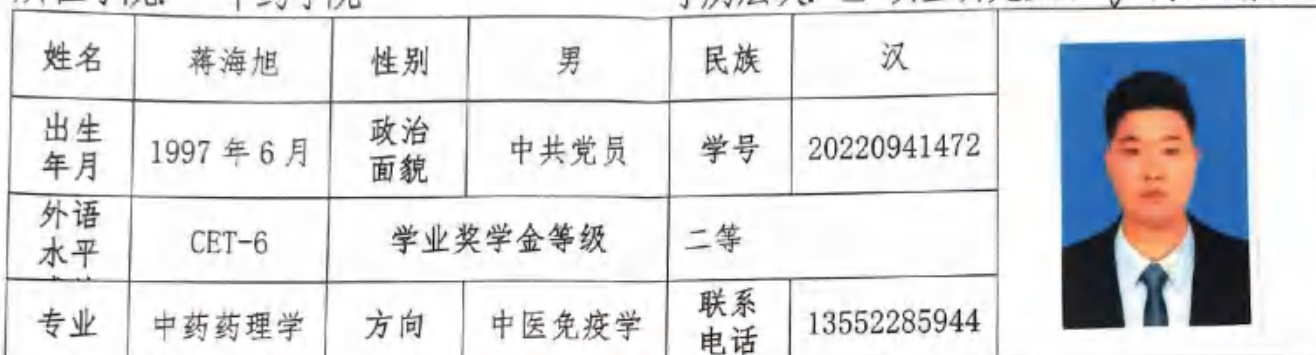 中药学院
姓名 蒋海旭 性别 男 民族 汉
出生年月 1997年6月 政治面貌 中共党员 学号 20220941472
外语水平 CET-6 学业奖学金等级 二等
专业 中药药理学 方向 中医免疫学 联系电话 13552285944